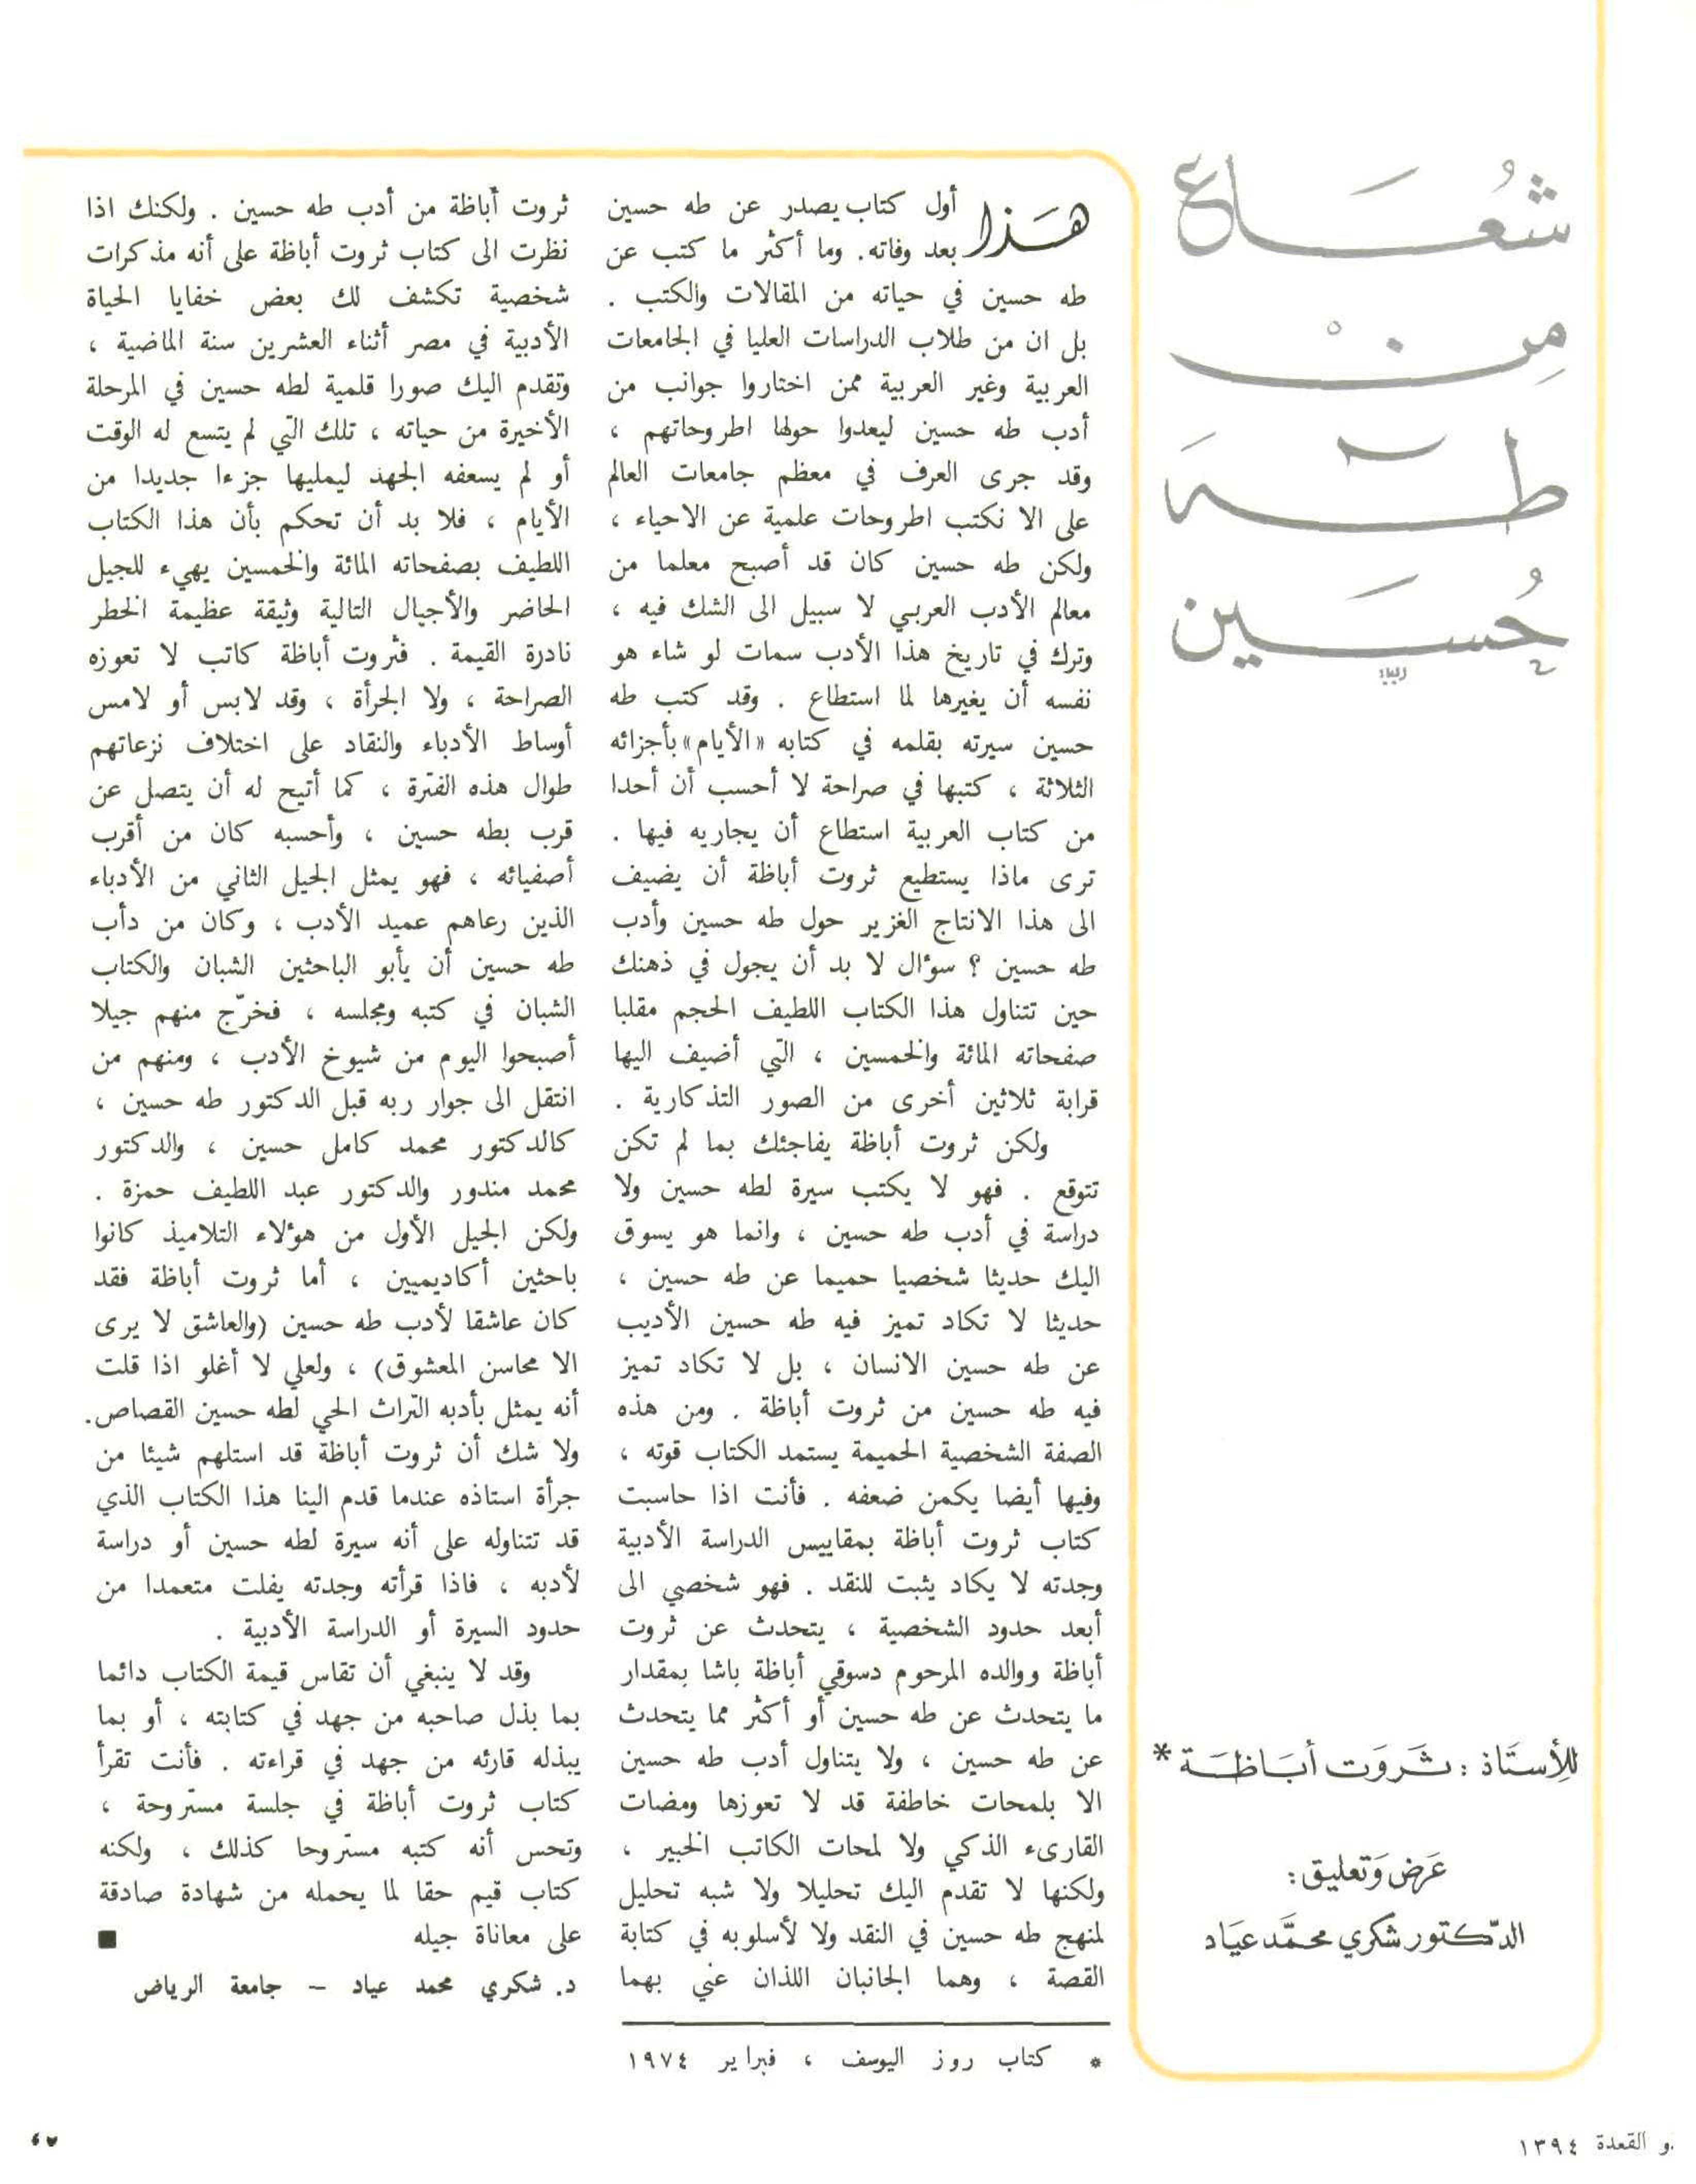 شُعَاع
مِنْ
طٰهَ
حُسَين
للأستَاذ : ثَروَت أبَاظَة *
عَرض وَتعليق :
الدّكتور شكري محمَّد عيَاد
هَذا أول كتاب يصدر عن طه حسين
بعد وفاته . وما أكثر ما كتب عن
طه حسين في حياته من المقالات والكتب .
بل ان من طلاب الدراسات العليا في الجامعات
العربية وغير العربية ممن اختاروا جوانب من
أدب طه حسين ليعدوا حولها اطروحاتهم ،
وقد جرى العرف في معظم جامعات العالم
على الا نكتب اطروحات علمية عن الاحياء ،
ولكن طه حسين كان قد أصبح معلما من
معالم الأدب العربي لا سبيل الى الشك فيه ،
وترك في تاريخ هذا الأدب سمات لو شاء هو
نفسه أن يغيرها لما استطاع . وقد كتب طه
حسين سيرته بقلمه في كتابه «الأيام» بأجزائه
الثلاثة ، كتبها في صراحة لا أحسب أن أحدا
من كتاب العربية استطاع أن يجاريه فيها .
ترى ماذا يستطيع ثروت أباظة أن يضيف
الى هذا الانتاج الغزير حول طه حسين وأدب
طه حسين ؟ سؤال لا بد أن يجول في ذهنك
حين تتناول هذا الكتاب اللطيف الحجم مقلبا
صفحاته المائة والخمسين ، التي أضيف اليها
قرابة ثلاثين أخرى من الصور التذكارية .
ولكن ثروت أباظة يفاجئك بما لم تكن
تتوقع . فهو لا يكتب سيرة لطه حسين ولا
دراسة في أدب طه حسين ، وانما هو يسوق
اليك حديثا شخصيا حميما عن طه حسين ،
حديثا لا تكاد تميز فيه طه حسين الأديب
عن طه حسين الانسان ، بل لا تكاد تميز
فيه طه حسين من ثروت أباظة . ومن هذه
الصفة الشخصية الحميمة يستمد الكتاب قوته ،
وفيها أيضا يكمن ضعفه . فأنت اذا حاسبت
كتاب ثروت أباظة بمقاييس الدراسة الأدبية
وجدته لا يكاد يثبت للنقد . فهو شخصي الى
أبعد حدود الشخصية ، يتحدث عن ثروت
أباظة ووالده المرحوم دسوقي أباظة باشا بمقدار
ما يتحدث عن طه حسين أو أكثر مما يتحدث
عن طه حسين ، ولا يتناول أدب طه حسين
الا بلمحات خاطفة قد لا تعوزها ومضات
القارىء الذكي ولا لمحات الكاتب الخبير ،
ولكنها لا تقدم اليك تحليلا ولا شبه تحليل
لمنهج طه حسين في النقد ولا لأسلوبه في كتابة
القصة ، وهما الجانبان اللذان عني بهما
* كتاب روز اليوسف ، فبراير ١٩٧٤
ثروت أباظة من أدب طه حسين . ولكنك اذا
نظرت الى كتاب ثروت أباظة على أنه مذكرات
شخصية تكشف لك بعض خفايا الحياة
الأدبية في مصر أثناء العشرين سنة الماضية ،
وتقدم اليك صورا قلمية لطه حسين في المرحلة
الأخيرة من حياته ، تلك التي لم يتسع له الوقت
أو لم يسعفه الجهد ليمليها جزءا جديدا من
الأيام ، فلا بد أن تحكم بأن هذا الكتاب
اللطيف بصفحاته المائة والخمسين يهيء للجيل
الحاضر والأجيال التالية وثيقة عظيمة الخطر
نادرة القيمة . فثروت أباظة كاتب لا تعوزه
الصراحة ، ولا الجرأة ، وقد لابس أو لامس
أوساط الأدباء والنقاد على اختلاف نزعاتهم
طوال هذه الفترة ، كما أتيح له أن يتصل عن
قرب بطه حسين ، وأحسبه كان من أقرب
أصفيائه ، فهو يمثل الجيل الثاني من الأدباء
الذين رعاهم عميد الأدب ، وكان من دأب
طه حسين أن يأبو الباحثين الشبان والكتاب
الشبان في كتبه ومجلسه ، فخرّج منهم جيلا
أصبحوا اليوم من شيوخ الأدب ، ومنهم من
انتقل الى جوار ربه قبل الدكتور طه حسين ،
كالدكتور محمد كامل حسين ، والدكتور
محمد مندور والدكتور عبد اللطيف حمزة .
ولكن الجيل الأول من هؤلاء التلاميذ كانوا
باحثين أكاديميين ، أما ثروت أباظة فقد
كان عاشقا لأدب طه حسين (والعاشق لا يرى
الا محاسن المعشوق) ، ولعلي لا أغلو اذا قلت
أنه يمثل بأدبه التراث الحي لطه حسين القصاص .
ولا شك أن ثروت أباظة قد استلهم شيئا من
جرأة استاذه عندما قدم الينا هذا الكتاب الذي
قد تتناوله على أنه سيرة لطه حسين أو دراسة
لأدبه ، فاذا قرأته وجدته يفلت متعمدا من
حدود السيرة أو الدراسة الأدبية .
وقد لا ينبغي أن تقاس قيمة الكتاب دائما
بما بذل صاحبه من جهد في كتابته ، أو بما
يبذله قارئه من جهد في قراءته . فأنت تقرأ
كتاب ثروت أباظة في جلسة مستروحة ،
وتحس أنه كتبه مستروحا كذلك ، ولكنه
كتاب قيم حقا لما يحمله من شهادة صادقة
على معاناة جيله ■
د. شكري محمد عياد – جامعة الرياض
و القعدة ١٣٩٤